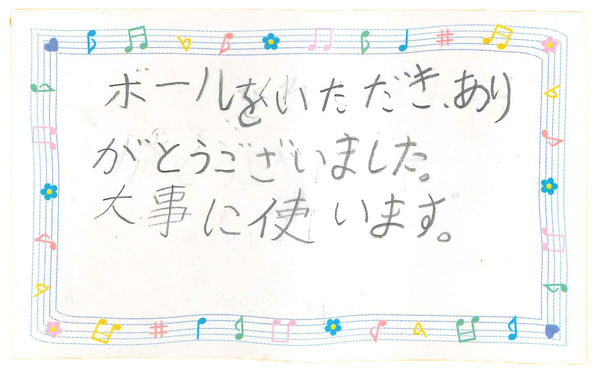 ボールをいただき、あり
がとうございました。
大事に使います。